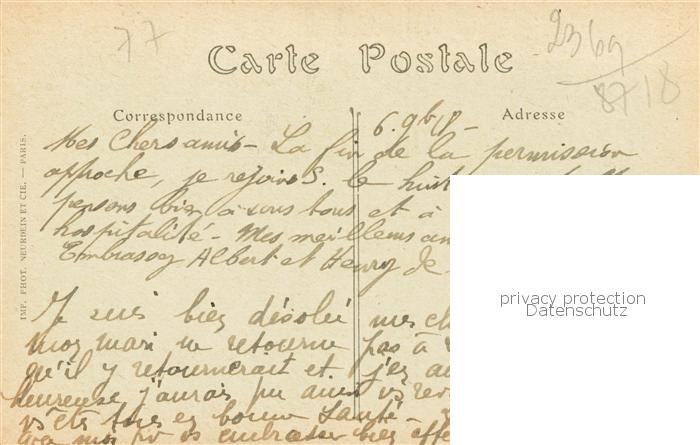 77
2369
8718
Carte Postale
Correspondance
Adresse
IMP. PHOT. NEURDEIN ET CIE. — PARIS.
6. 9b 18 -
Mes Chers amis - La fin de la permission
approche, je rejoins S. le huit
pensons bien à vous tous et à
hospitalité - Mes meilleurs
Embrassez Albert et Henry de
Je suis bien désolée mes
mon mari ne retourne pas à
qu'il y retournerait et j'en
heureuse j'aurais pu aussi vs
vs êts tous en bonne santé -
moi pr vs embrasser bien
privacy protection
Datenschutz